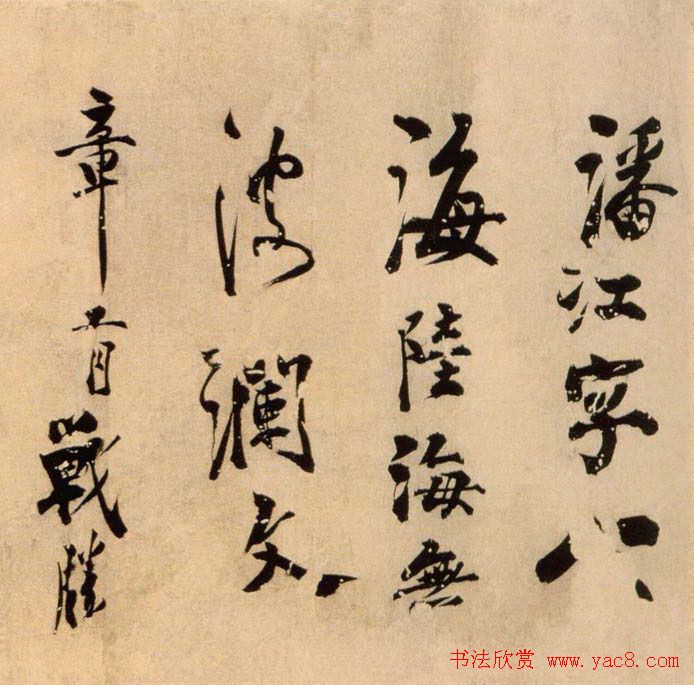 潘江字八
海陸海無
波瀾文
章有戰勝
书法欣赏 www.yac8.com